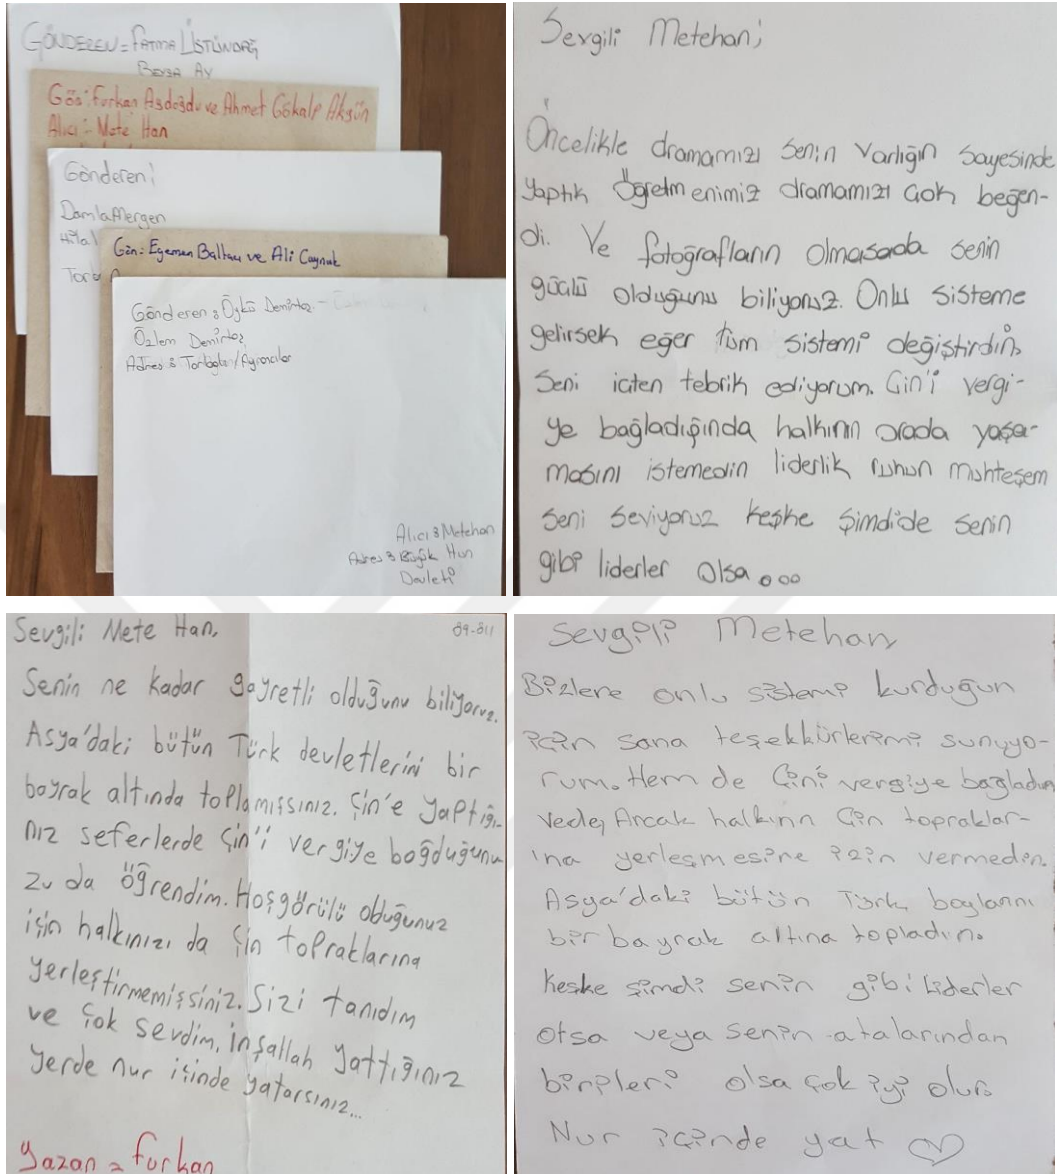 GÖNDEREN = FATMA ÜSTÜNDAĞ
BEYZA AY
Gön: Furkan Aşdoğdu ve Ahmet Gökalp Akgün
Alıcı: Mete Han
Gönderen:
Damla Mergen
Gön: Egemen Baltacı ve Ali Caynak
Gönderen: Öykü Demirtaz -
Özlem Demirtaz
Adres: Torbalı/Ayrancılar
Alıcı: Metehan
Adres: Büyük Hun
Devleti
Sevgili Metehan;
Öncelikle dramamızı senin varlığın sayesinde
yaptık Öğretmenimiz dramamızı çok beğen-
di. Ve fotoğrafların olmasada senin
güçlü olduğunu biliyoruz. Onlu sisteme
gelirsek eğer tüm sistemi değiştirdin.
Seni içten tebrik ediyorum. Çin'i vergi-
ye bağladığında halkının orada yaşa-
masını istemedin liderlik ruhun muhteşem
seni seviyoruz keşke şimdide senin
gibi liderler olsa...
Sevgili Mete Han,
Senin ne kadar gayretli olduğunu biliyoruz.
Asya'daki bütün Türk devletlerini bir
bayrak altında toplamışsınız. Çin'e yaptığı-
nız seferlerde Çin'i vergiye boğduğunu
zu da öğrendim. Hoşgörülü olduğunuz
için halkınızı da Çin topraklarına
yerleştirmemişsiniz. Sizi tanıdım
ve çok sevdim, inşallah yattığınız
yerde nur içinde yatarsınız...
Yazan = furkan
Sevgili Metehan,
Bizlere onlu sistemi kurduğun
için sana teşekkürlerimi sunuyo-
rum. Hem de Çini vergiye bağladın
vede, Ancak halkının Çin toprakları-
na yerleşmesine izin vermedin.
Asya'daki bütün Türk boylarını
bir bayrak altına topladın.
keşke şimdi senin gibi liderler
olsa veya senin atalarından
birileri olsa çok iyi olur.
Nur içinde yat ♡